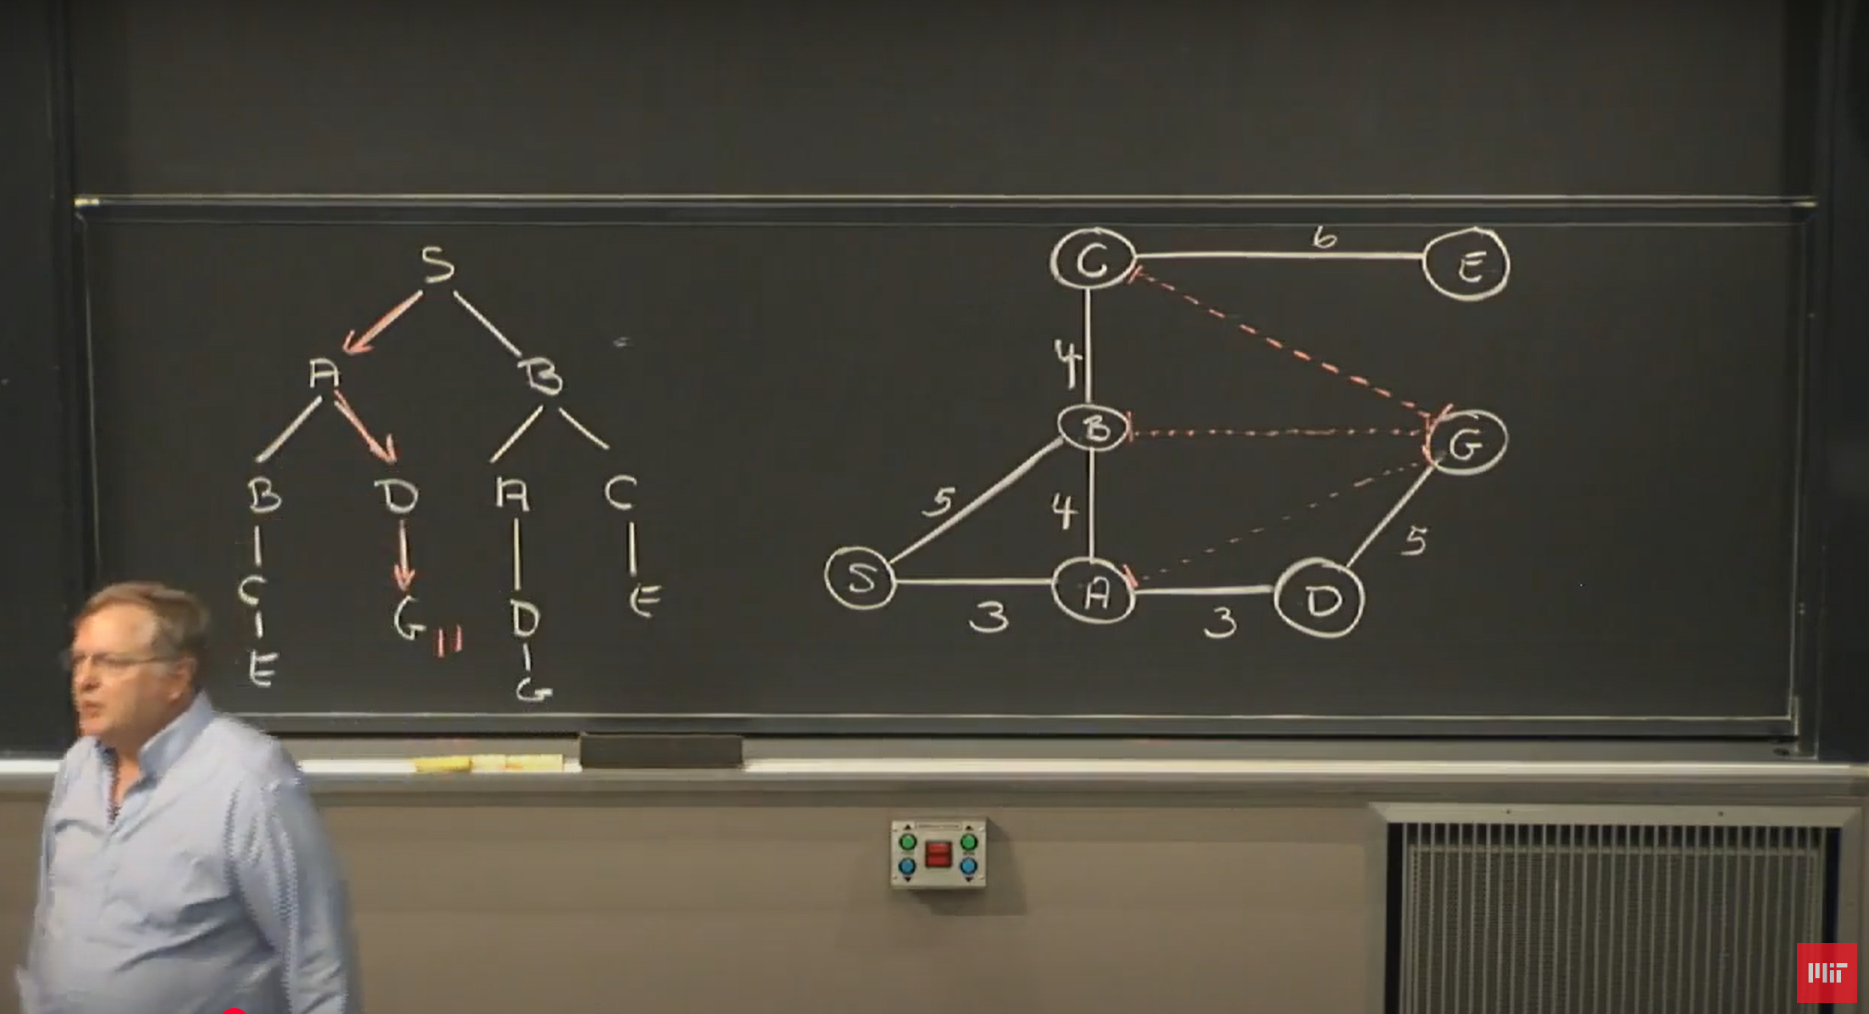 S
A B
B D A C
C G 11 D E
E G
C 6 E
4
B G
5 4 5
S A D
3 3
MIT